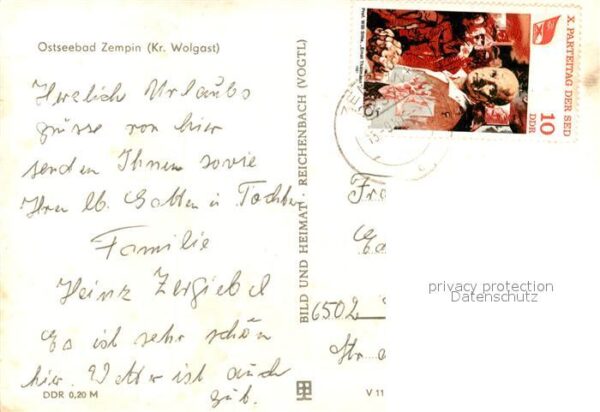 Ostseebad Zempin (Kr. Wolgast)
Herzlich Urlaubs
grüsse von hier
senden Ihnen sowie
Ihren lb. Gatten u. Tochter
Familie
Heinz Zergiebel
Es ist sehr schön
hier. Wetter ist auch
gut.
DDR 0,20 M
BILD UND HEIMAT · REICHENBACH (VOGTL)
V 11
X. PARTEITAG DER SED
10
DDR
Fra
6502
Str.
privacy protection
Datenschutz